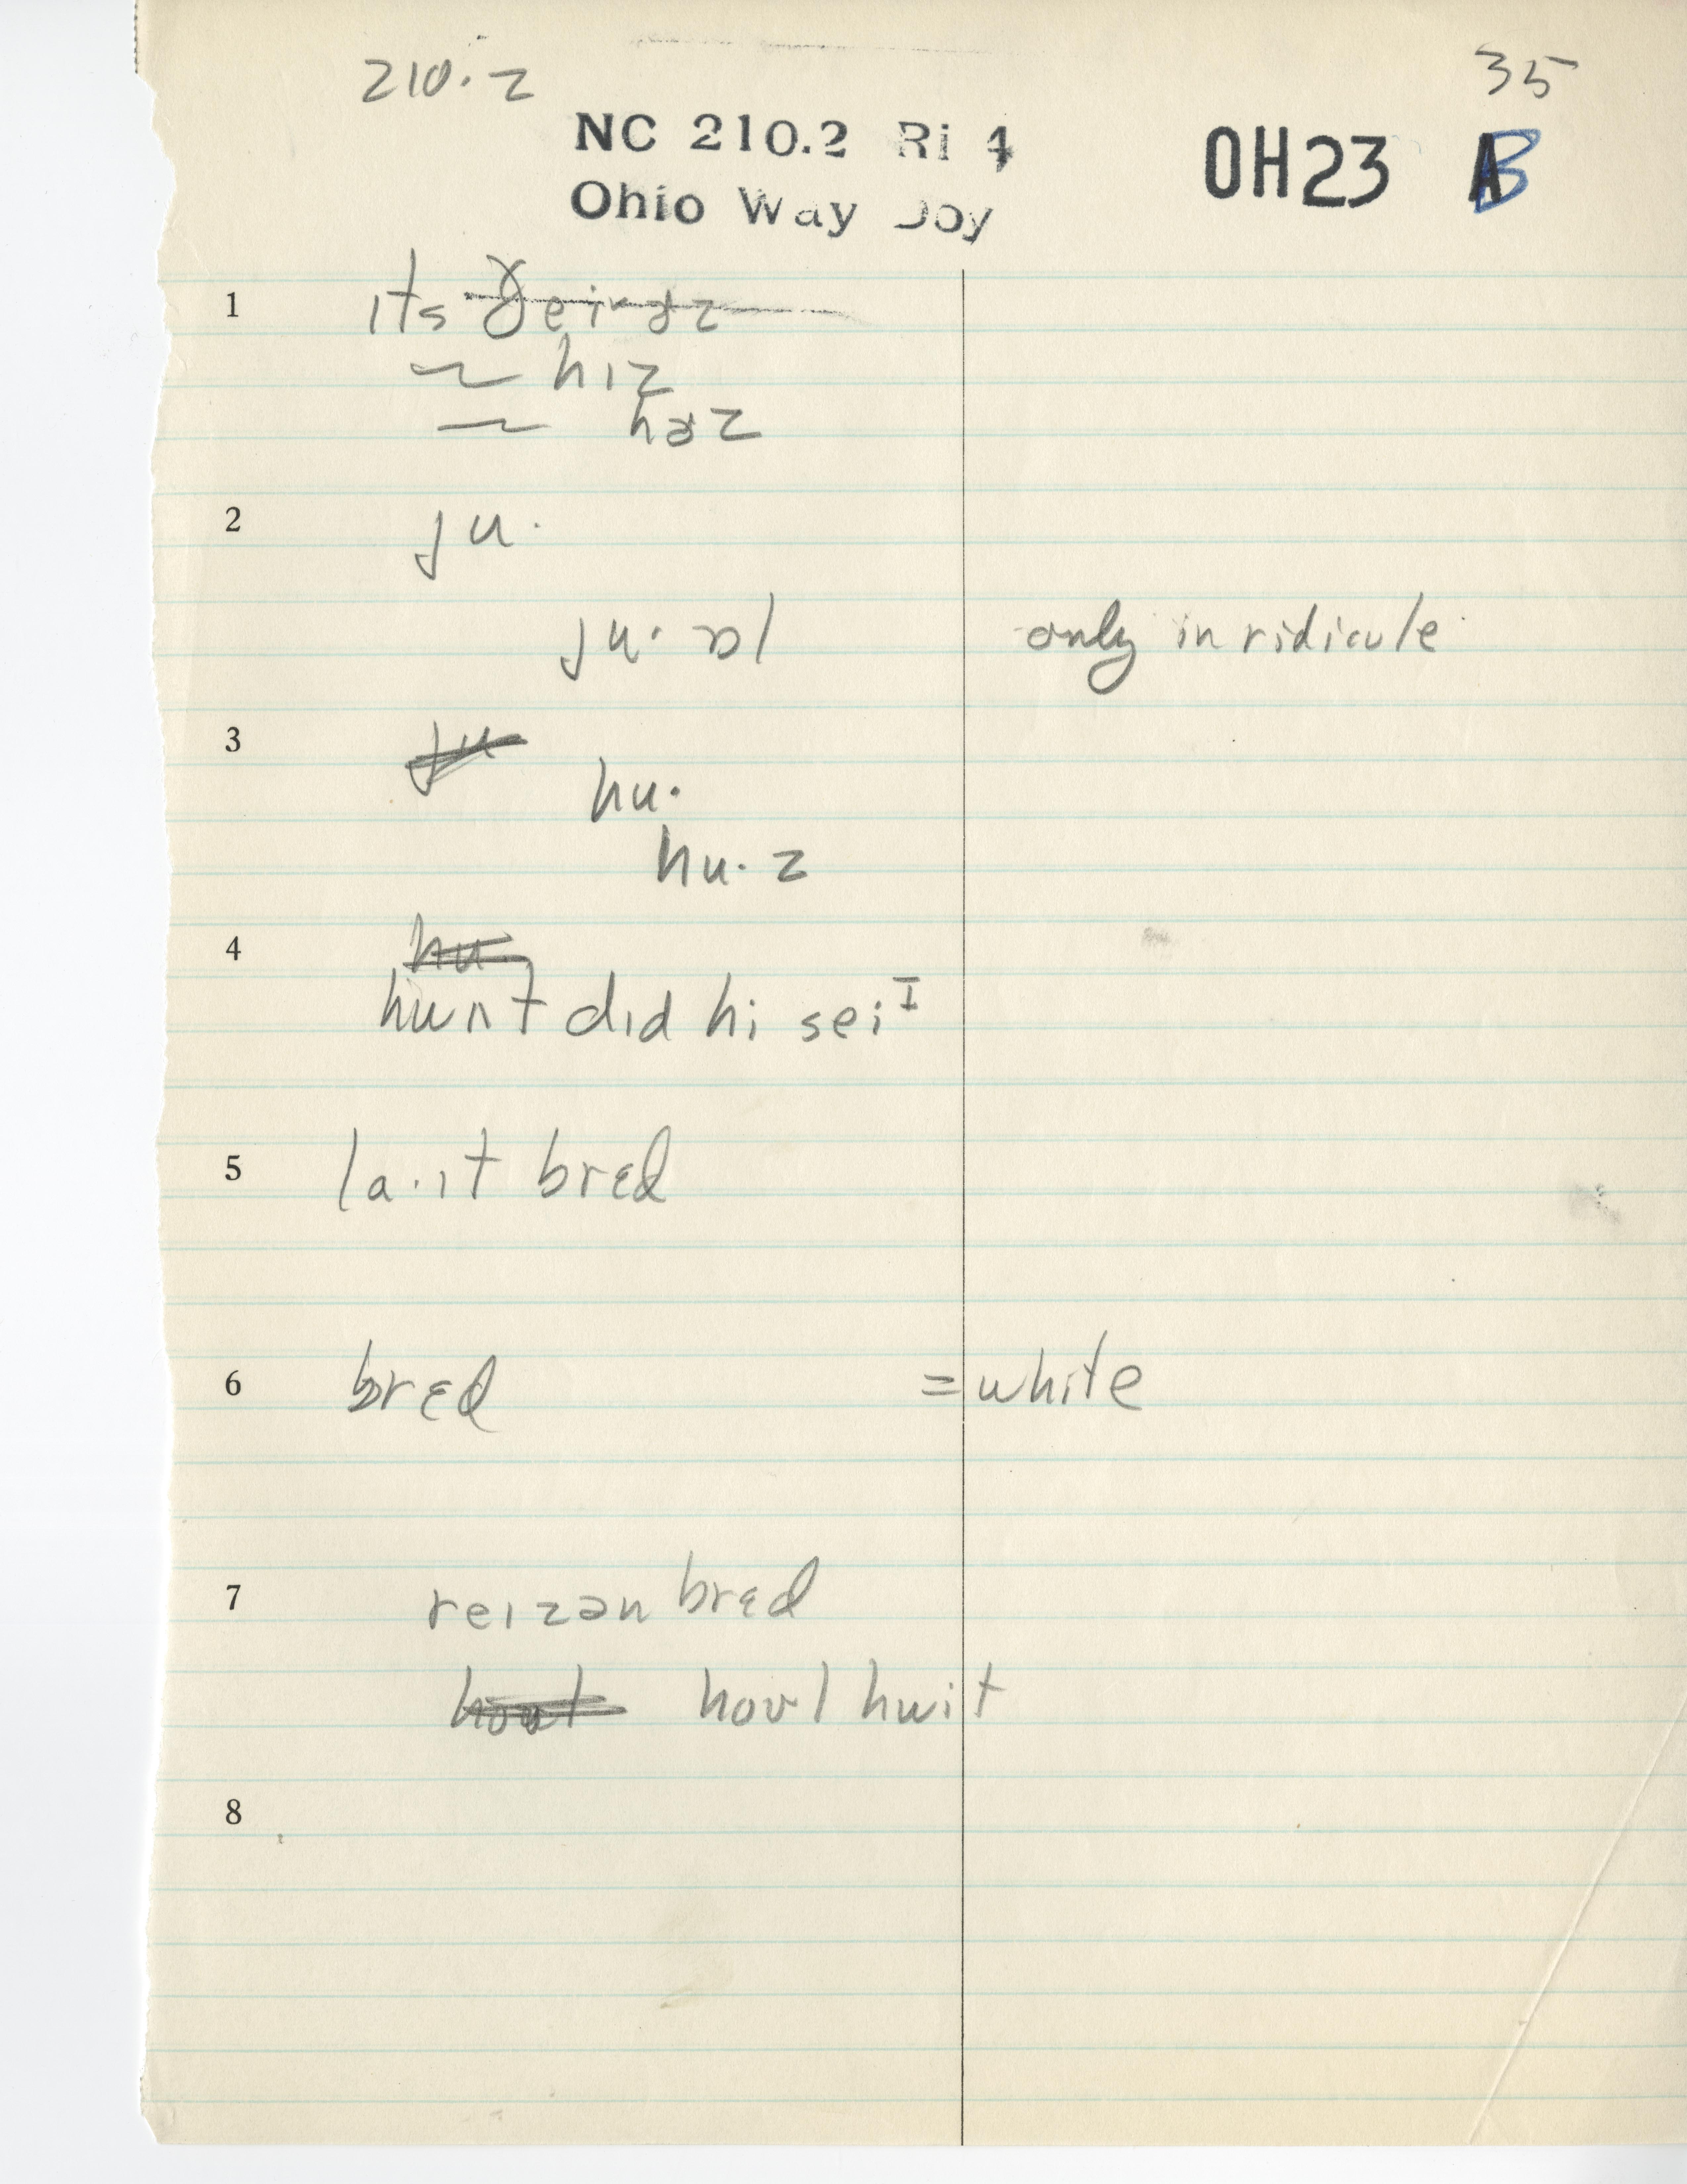 210.2
35
NC 210.2 Ri 4
Ohio Way Joy
OH23 B
1 ɪts ðeirɚz
~ hɪz
~ hɚz
2 ju·
ju·ɔl only in ridicule
3 ju
hu·
hu·z
4 hu
hwɑt did hi sei I
5 la·ɪt brɛd
6 brɛd = white
7 reizən brɛd
houl houl hwit
8